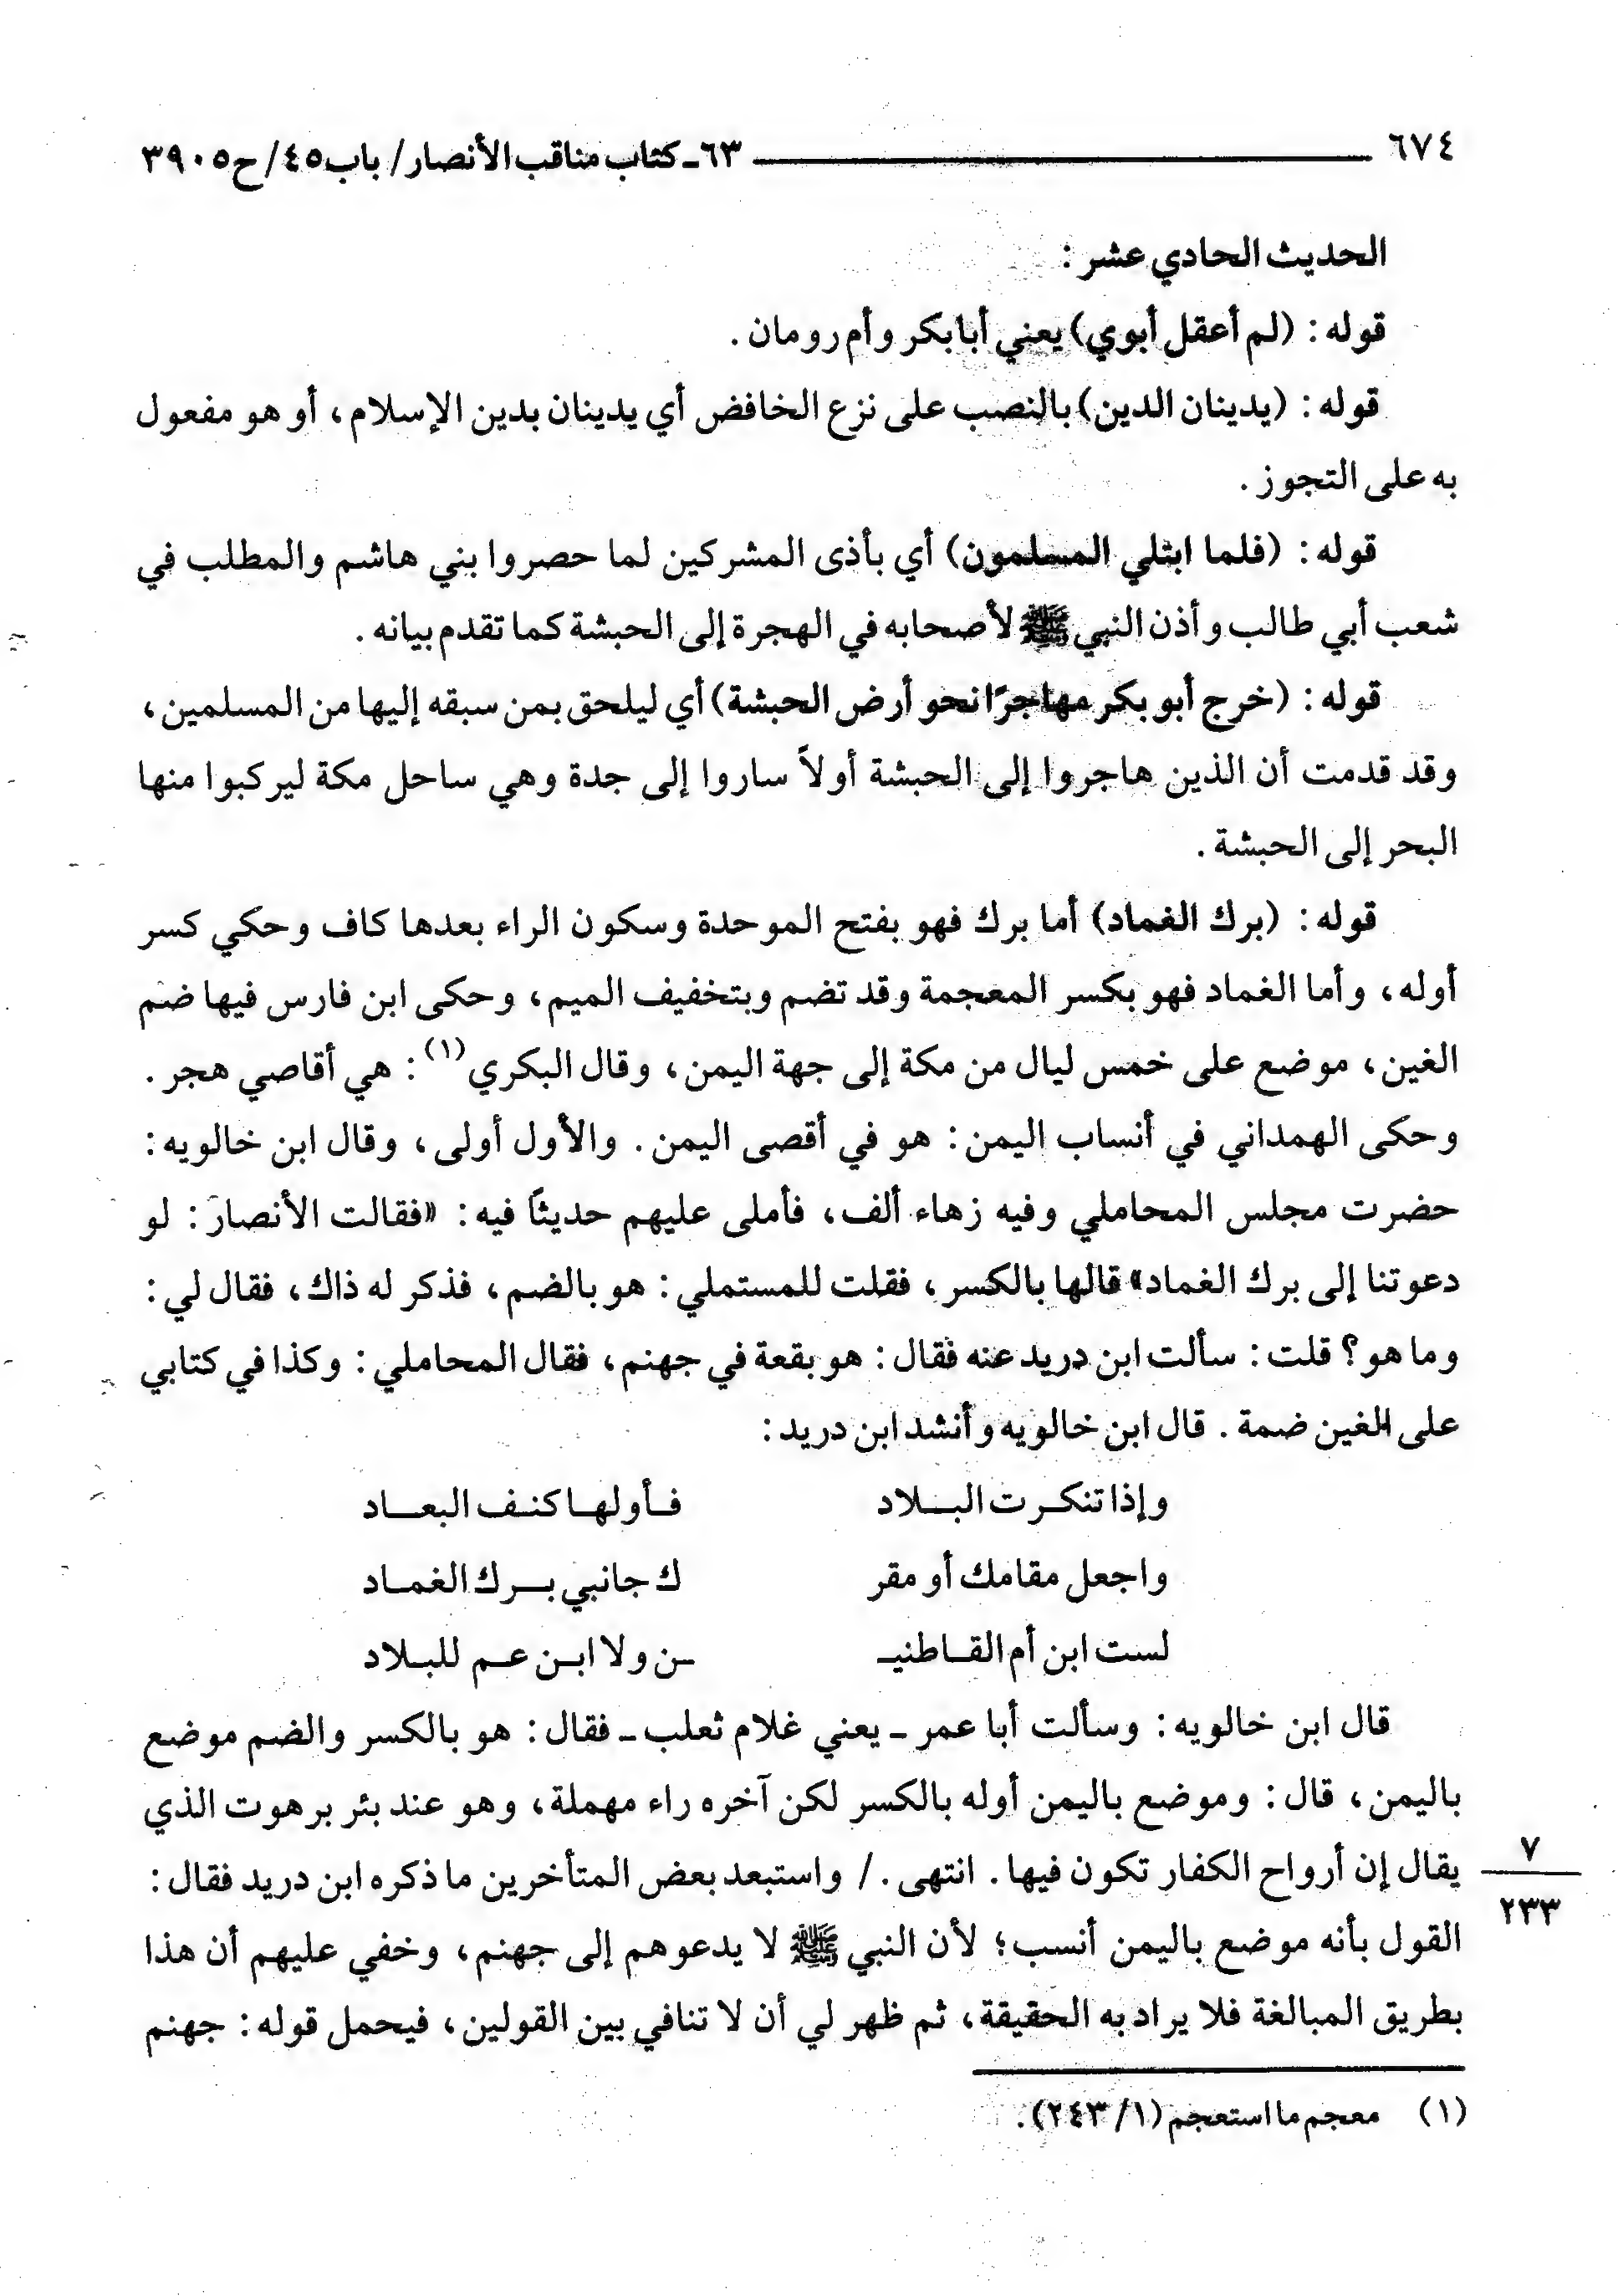 ٦٧٤ ــــــــــ ٦٣ـ كتاب مناقب الأنصار/ باب٤٥/ ح٣٩٠٥
الحديث الحادي عشر :
قوله : (لم أعقل أبوي) يعني أبا بكر وأم رومان .
قوله : (يدينان الدين) بالنصب على نزع الخافض أي يدينان بدين الإسلام، أو هو مفعول
به على التجوز .
قوله : (فلما ابتلي المسلمون) أي بأذى المشركين لما حصروا بني هاشم والمطلب في
شعب أبي طالب وأذن النبي ﷺ لأصحابه في الهجرة إلى الحبشة كما تقدم بيانه .
قوله : (خرج أبو بكر مهاجرًا نحو أرض الحبشة) أي ليلحق بمن سبقه إليها من المسلمين،
وقد قدمت أن الذين هاجروا إلى الحبشة أولاً ساروا إلى جدة وهي ساحل مكة ليركبوا منها
البحر إلى الحبشة .
قوله : (برك الغماد) أما برك فهو بفتح الموحدة وسكون الراء بعدها كاف وحكي كسر
أوله، وأما الغماد فهو بكسر المعجمة وقد تضم وبتخفيف الميم، وحكى ابن فارس فيها ضم
الغين، موضع على خمس ليال من مكة إلى جهة اليمن، وقال البكري(١) : هي أقاصي هجر .
وحكى الهمداني في أنساب اليمن : هو في أقصى اليمن . والأول أولى، وقال ابن خالويه :
حضرت مجلس المحاملي وفيه زهاء ألف، فأملى عليهم حديثًا فيه : «فقالت الأنصار : لو
دعوتنا إلى برك الغماد» قالها بالكسر، فقلت للمستملي : هو بالضم، فذكر له ذاك، فقال لي :
وما هو؟ قلت : سألت ابن دريد عنه فقال : هو بقعة في جهنم، فقال المحاملي : وكذا في كتابي
على الغين ضمة . قال ابن خالويه وأنشد ابن دريد :
وإذا تنكـرت البــلاد فـأولهـا كنـف البعــاد
واجعل مقامك أو مقر ك جانبي بــرك الغمـاد
لست ابن أم القـاطنيـ ـن ولا ابـن عـم للبـلاد
قال ابن خالويه : وسألت أبا عمر ـ يعني غلام ثعلب ـ فقال : هو بالكسر والضم موضع
باليمن، قال : وموضع باليمن أوله بالكسر لكن آخره راء مهملة، وهو عند بئر برهوت الذي
يقال إن أرواح الكفار تكون فيها . انتهى . / واستبعد بعض المتأخرين ما ذكره ابن دريد فقال :
٧
٢٣٣
القول بأنه موضع باليمن أنسب؛ لأن النبي ﷺ لا يدعوهم إلى جهنم، وخفي عليهم أن هذا
بطريق المبالغة فلا يراد به الحقيقة، ثم ظهر لي أن لا تنافي بين القولين، فيحمل قوله : جهنم
(١) معجم ما استعجم (١/ ٢٤٣) .